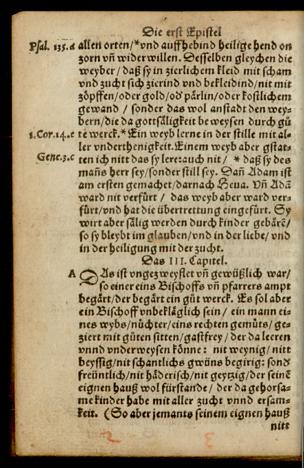 Die erst Epistel
Psal. 135.a allen orten/*vnd auffhebind heilige hend on
zorn vñ widerwillen. Desselben gleychen die
weyber/ daß sy in zierlichem kleid mit scham
vnd zucht sich zierind vnd bekleidind/nit mit
zöpffen/oder gold/oď pärlin/oder kostlichem
gewand / sonder das wol anstadt den wey-
bern/die da gottsäligkeit beweysen durch gů
1.Cor.14.e te werck.* Ein weyb lerne in der stille mit al-
ler vnderthenigkeit. Einem weyb aber gstat-
Gene.3.c ten ich nitt das sy lere/auch nit / * daß sy des
mañs herr sey/sonder still sey. Dañ Adam ist
am ersten gemachet/darnach Heua. Vñ Adã
ward nit verfürt / das weyb aber ward ver-
fürt/vnd hat die übertrettung eingefürt. Sy
wirt aber sälig werden durch kinder gebärẽ/
so sy bleybt im glauben/vnd in der liebe/ vnd
in der heiligung mit der zucht.
Das III. Capitel.
A DAs ist vngezweyflet vñ gewüßlich war/
so einer eins Bischoffs vñ pfarrers ampt
begärt/der begärt ein gůt werck. Es sol aber
ein Bischoff vnbekläglich sein / ein mann ei-
nes wybs/nüchter/eins rechten gemůts/ge-
ziert mit gůten sitten/gastfrey/ der da leeren
vnnd vnderweysen könne: nit weynig/ nitt
beyssig/nit schantlichs gwüns begirig: sond
freüntlich/nit häderisch/nit geytzig/der seinẽ
eignen hauß wol fürstande/ der da gehorsa-
me kinder habe mit aller zucht vnnd ersam-
keit. (So aber jemants seinem eignen hauß
nitt